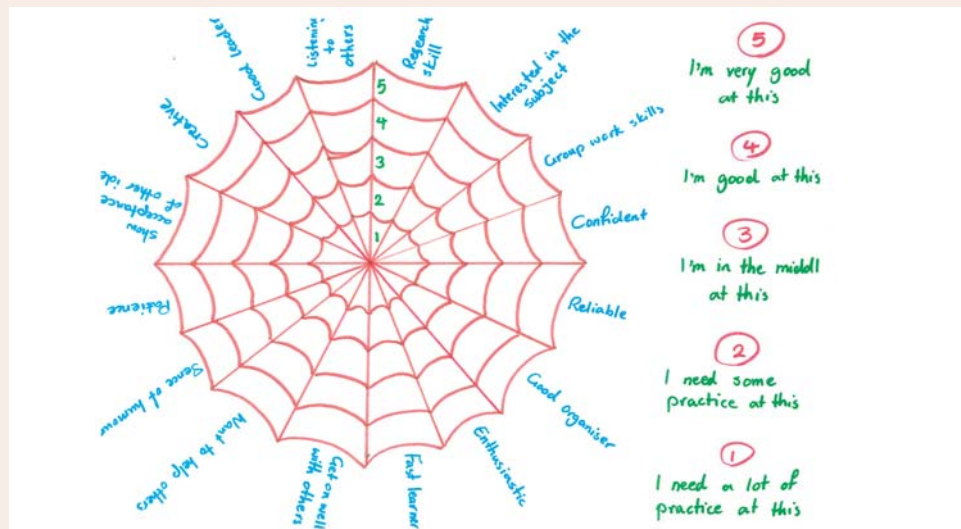 Listenin
to
others
Research
skill
Interested in the
subject
Group work skills
Confident
Reliable
Good organiser
Enthusiastic
Fast learner
Get on well
with others
Want to help others
Sence of humour
Patience
show
acceptance
of other ide
Creative
Good leader
5
4
3
2
1
5
I'm very good
at this
4
I'm good at this
3
I'm in the middl
at this
2
I need some
practice at this
1
I need a lot of
practice at this